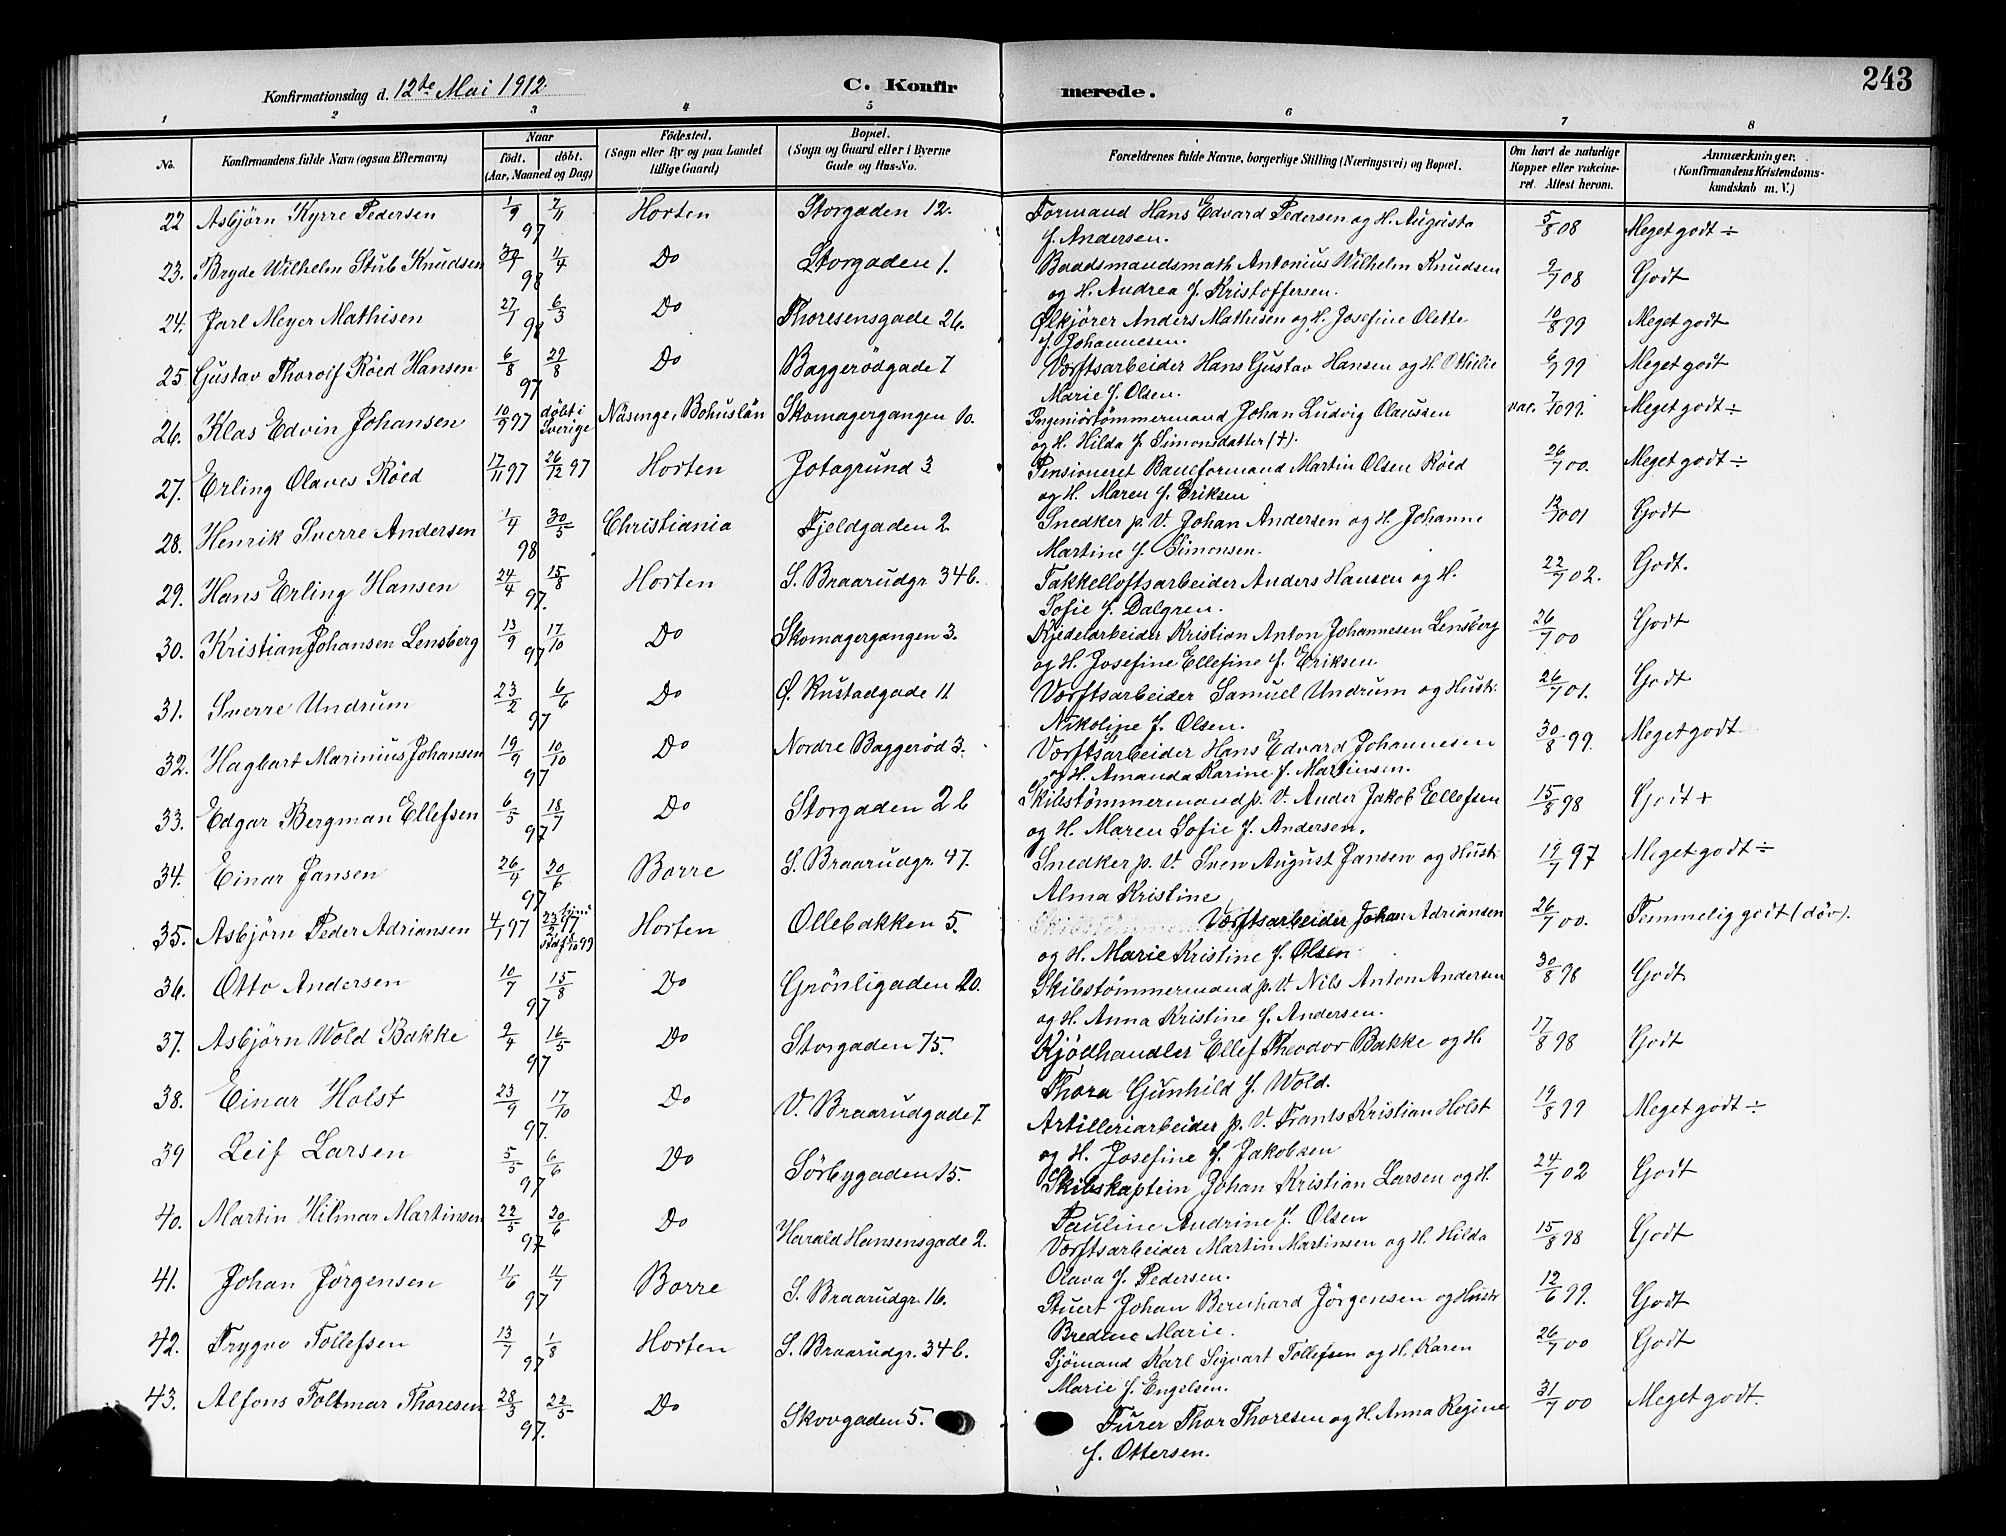 243
Konfirmationsdag d. 12te Mai 1912. C. Konfirmerede.
1 2 3 4 5 6 7 8
No. Konfirmandens fulde Navn (ogsaa Efternavn) Naar födt. döbt. (Aar, Maaned og Dag) Födested. (Sogn eller By og paa Landet tillige Gaard) Bopæl. (Sogn og Gaard eller i Byerne Gade og Hus-No. Forældrenes fulde Navne, borgerlige Stilling (Næringsvei) og Bopæl. Om havt de naturlige Kopper eller vakcineret. Attest herom. Anmærkninger. (Konfirmandens Kristendomskundskab m. V.)
22 Asbjörn Kyrre Pedersen 1/9 97 7/11 Horten Storgaden 12. Formand Hans Edvard Pedersen og H. Augusta 5/8 08 Meget godt ÷
f. Andersen.
23. Bryde Wilhelm Stub Knudsen 30/1 98 11/4 Do Storgaden 1. Baadsmandsmath Antonius Wilhelm Knudsen 9/7 08 Godt
og H. Andrea f. Kristoffersen.
24. Jarl Meyer Mathisen 27/1 98 6/3 Do Thoresensgade 26. Ølkjörer Anders Mathisen og H. Josefine Olette 10/8 99 Meget godt
f. Johannesen.
25 Gustav Thorolf Röed Hansen 6/8 97 29/8 Do Baggerödgade 7 Værftsarbeider Hans Gustav Hansen og H. Othilie 6/7 99 Meget godt
Marie f. Olsen.
26. Klas Edvin Johansen 10/9 97 döbt i Sverige Näsinge, Bohuslän Skomagergangen 10. Ingeniörtömmermand Johan Ludvig Olaussen vac. 7/10 99. Meget godt ÷
og H. Hilda f. Simonsdatter (†).
27. Erling Olaves Röed 17/11 97 26/12 97 Horten Jotagrund 3 Pensioneret Baneformand Martin Olsen Röed 26/7 00. Meget godt ÷
og H. Maren f. Eriksen
28. Henrik Sverre Andersen 1/4 98 30/5 Christiania Fjeldgaden 2. Snedker p. V. Johan Andersen og H. Johanne 13/7 01 Godt
Martine f. Simonsen.
29. Hans Erling Hansen 24/4 97. 15/8 Horten S. Braarudgr. 34 b. Takkelloftsarbeider Anders Hansen og H. 22/7 02. Godt.
Sofie f. Dalgren.
30. Kristian Johansen Lensberg 13/9 97 17/10 Do Skomagergangen 3. Kjedelarbeider Kristian Anton Johannesen Lensberg 26/7 00 Godt
og H. Josefine Ellefine f. Eriksen.
31. Sverre Undrum 23/2 97 6/6 Do Ø. Rustadgade 11 Værftsarbeider Samuel Undrum og Hustr. 26/7 01. Godt
Nikoline f. Olsen.
32. Hagbart Marinius Johansen 19/9 97 10/10 Do Nordre Baggeröd 3. Værftsarbeider Hans Edvard Johannesen 30/8 99. Meget godt
og H. Amanda Karine f. Martinsen.
33. Edgar Bergman Ellefsen 6/5 97 18/7 Do Storgaden 2 b Skibstömmermand p. V. Ander Jakob Ellefsen 15/8 98 Godt +
og H. Maren Sofie f. Andersen.
34. Einar Jansen 26/4 97 20/6 Borre S. Braarudgr. 47. Snedker p. V. Sven August Jansen og Hustr. 19/7 97 Meget godt ÷
Alma Kristine
35. Asbjörn Peder Adriansen 4/1 97 23/2 97 Horten Ollebakken 5. Værftsarbeider Johan Adriansen 26/7 00. Temmelig godt (döv).
og H. Marie Kristine f. Olsen
36. Otto Andersen 10/7 97 15/8 Do Grönligaden 20. Skibstömmermand p. V. Nils Anton Andersen 30/8 98 Godt
og H. Anna Kristine f. Andersen.
37. Asbjörn Wold Bakke 9/4 97 16/5 Do Storgaden 75. Kjödhandler Ellef Theodor Bakke og H. 17/8 98 Godt
Thora Gunhild f. Wold.
38. Einar Holst 23/9 97. 17/10 Do V. Braarudgade 7. Artilleriarbeider p. V. Frants Kristian Holst 19/8 99 Meget godt ÷
og H. Josefine f. Jakobsen
39 Leif Larsen 5/5 97 6/6 Do Sörbygaden 15. Skibskaptein Johan Kristian Larsen og H. 24/7 02 Godt
Pauline Andrine f. Olsen
40. Martin Hilmar Martinsen 22/5 97 20/6 Do Harald Hansensgade 2. Værftsarbeider Martin Martinsen og H. Hilda 15/8 98 Godt
Olava f. Pedersen.
41. Johan Jörgensen 11/6 97 11/7 Borre S. Braarudgr. 16. Stuert Johan Bernhard Jörgensen og Hustr 12/6 99. Godt
Bredine Marie.
42. Trygve Tollefsen 13/7 97 1/8 Horten S. Braarudgr. 34 b. Sjömand Karl Sigvart Tollefsen og H. Karen 26/7 00 Godt
Marie f. Engelsen.
43. Alfons Foltmar Thoresen 28/3 97. 22/5 Do Skovgaden 5. Furer Thor Thoresen og H. Anna Regine 31/7 00 Meget godt.
f. Ottersen.